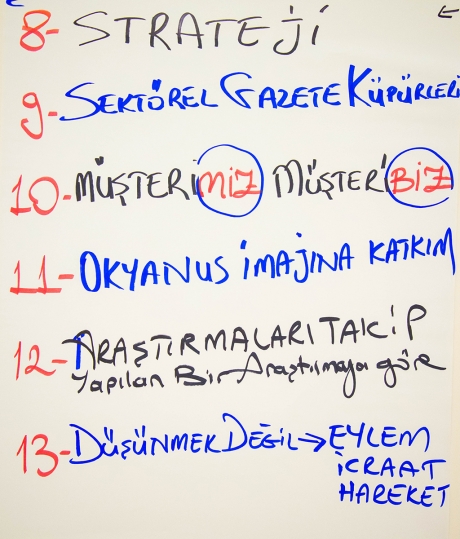 8- STRATEJİ
9- SEKTÖREL GAZETE KÜPÜRLERİ
10- MÜŞTERİMİZ MÜŞTERİBİZ
11- OKYANUS İMAJINA KATKIM
12- ARAŞTIRMALARI TAKİP
Yapılan Bir Araştırmaya göre
13- DÜŞÜNMEK DEĞİL → EYLEM
İCRAAT
HAREKET